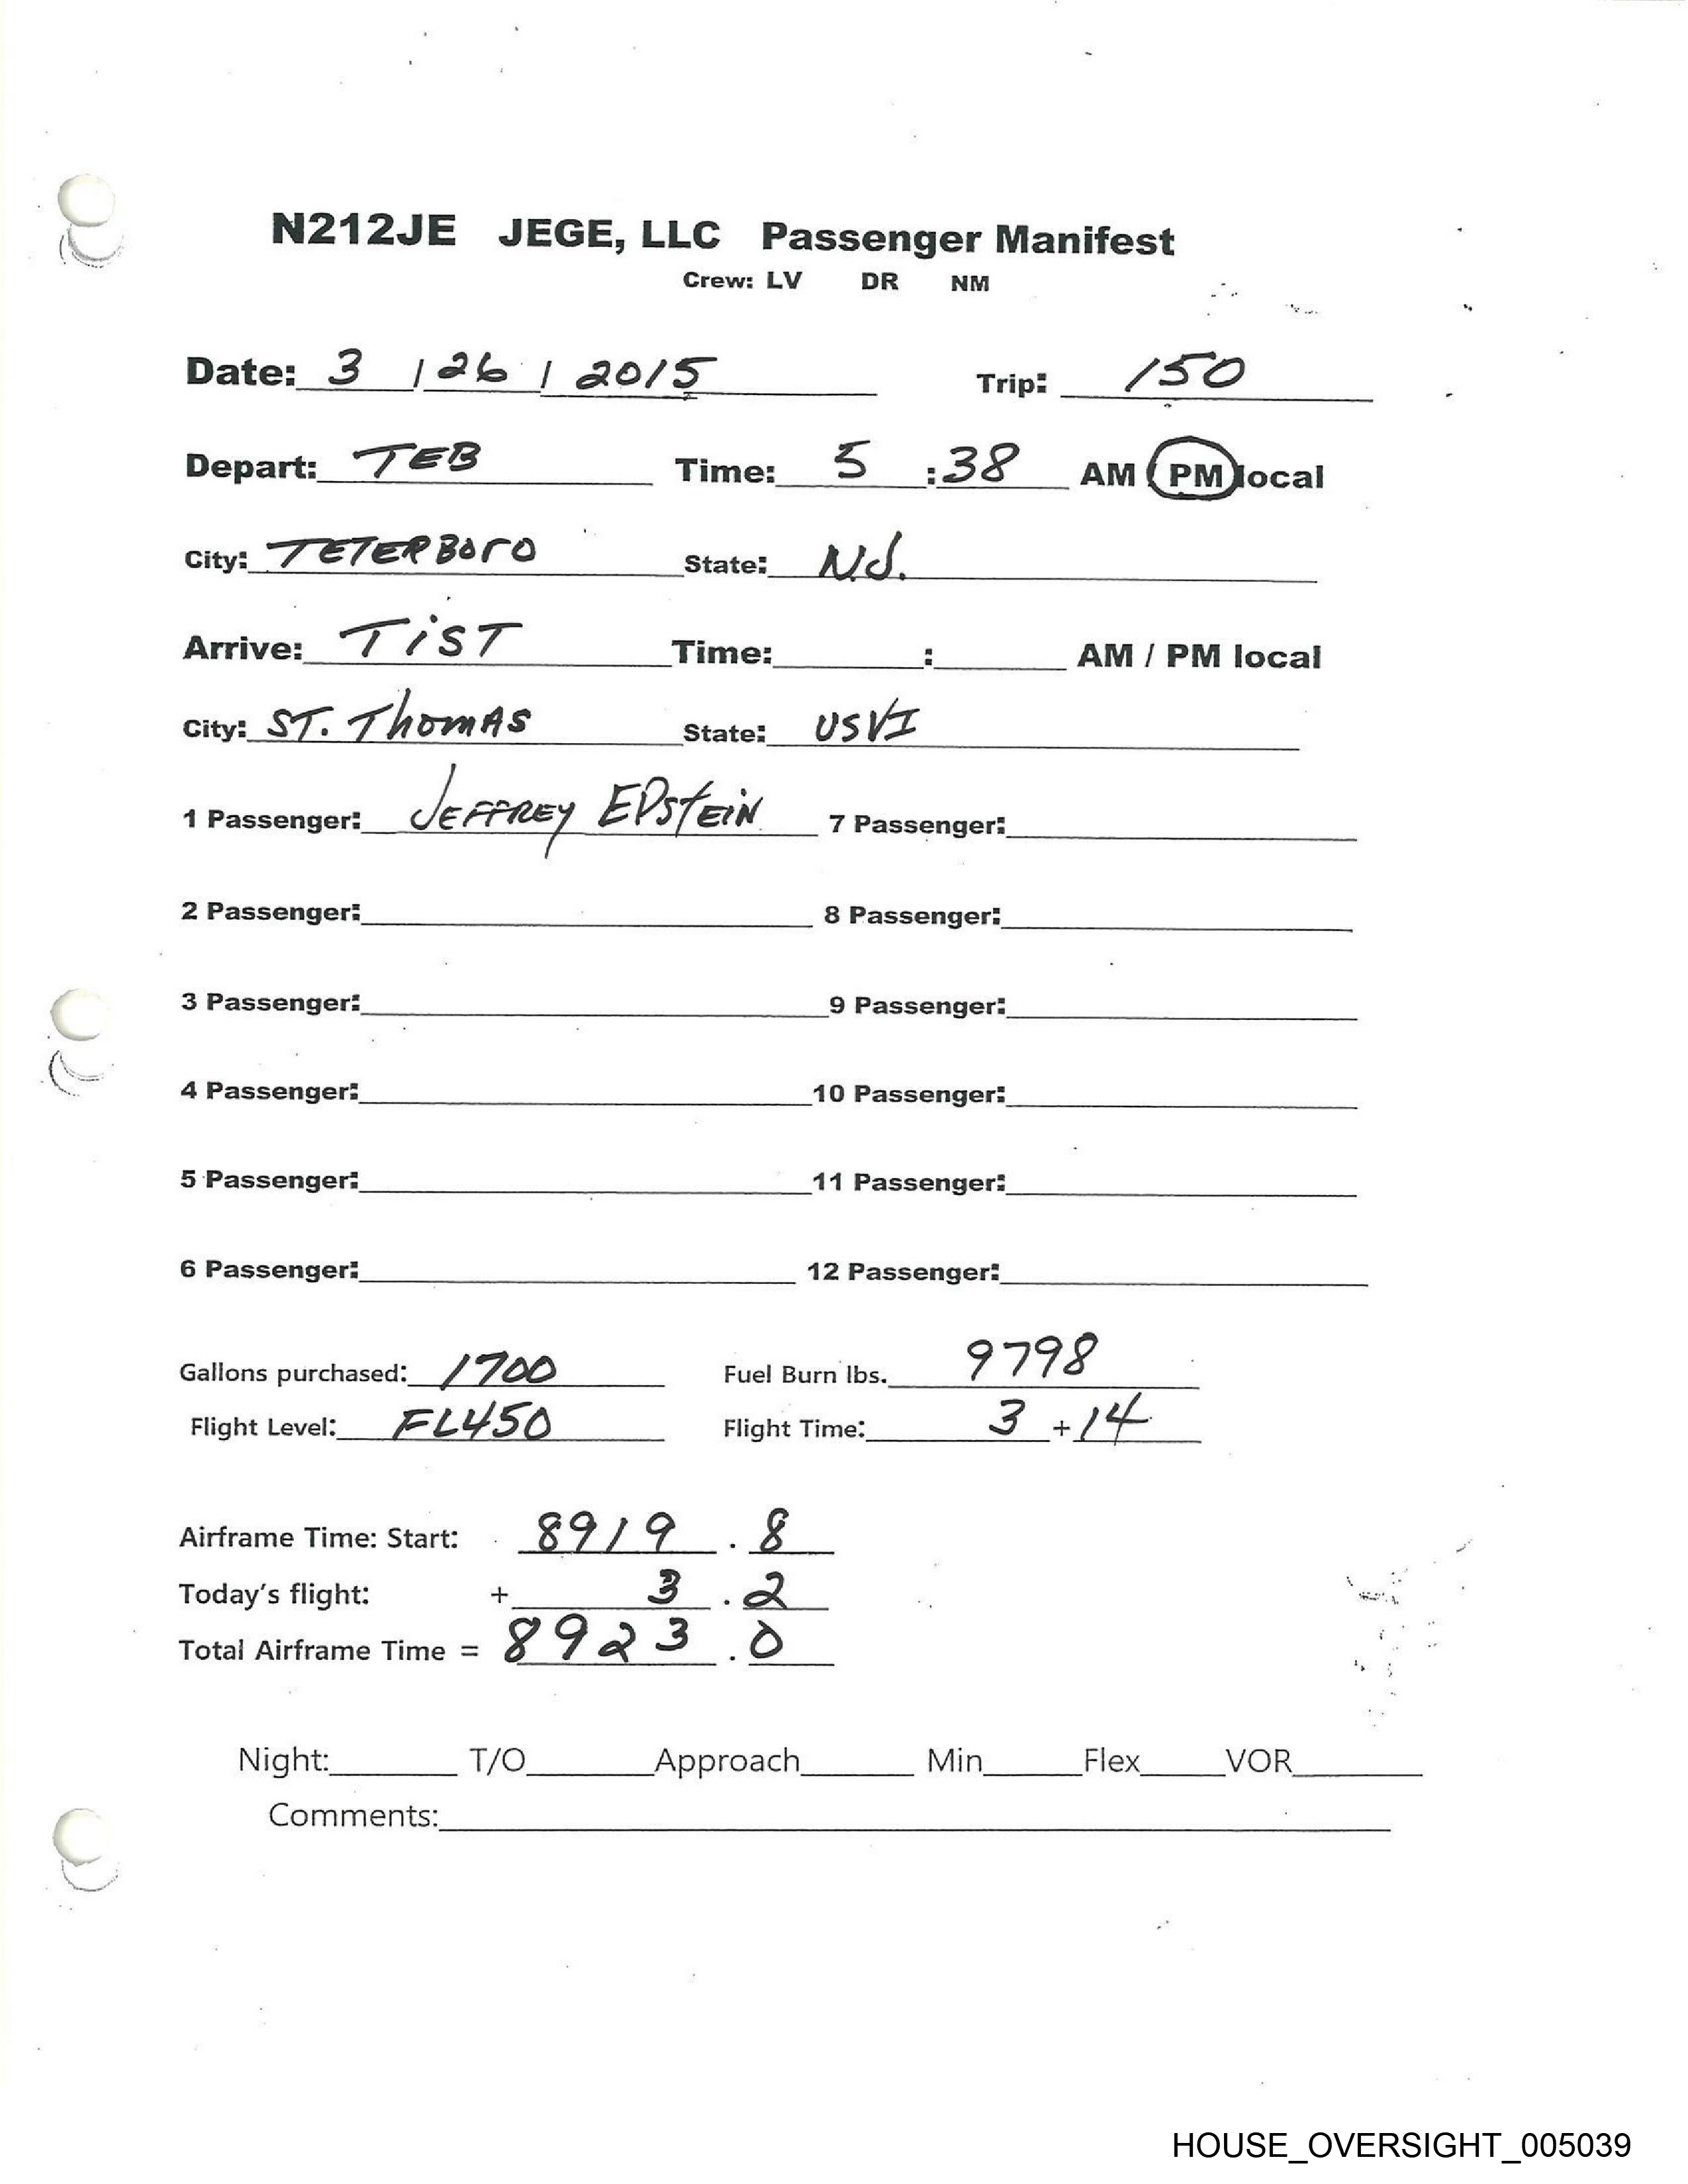 N212JE JEGE, LLC Passenger Manifest
Crew: LV DR NM
Date: 3 / 26 / 2015 Trip: 150
Depart: TEB Time: 5 :38 AM / PM local
City: TETERBORO State: N.J.
Arrive: TiST Time: : AM / PM local
City: ST. ThomAS State: USVI
1 Passenger: JEFFREY EPstEiN 7 Passenger:
2 Passenger: 8 Passenger:
3 Passenger: 9 Passenger:
4 Passenger: 10 Passenger:
5 Passenger: 11 Passenger:
6 Passenger: 12 Passenger:
Gallons purchased: 1700 Fuel Burn lbs. 9798
Flight Level: FL450 Flight Time: 3 + 14
Airframe Time: Start: 8919 . 8
Today's flight: + 3 . 2
Total Airframe Time = 8923 . 0
Night: T/O Approach Min Flex VOR
Comments:
HOUSE_OVERSIGHT_005039